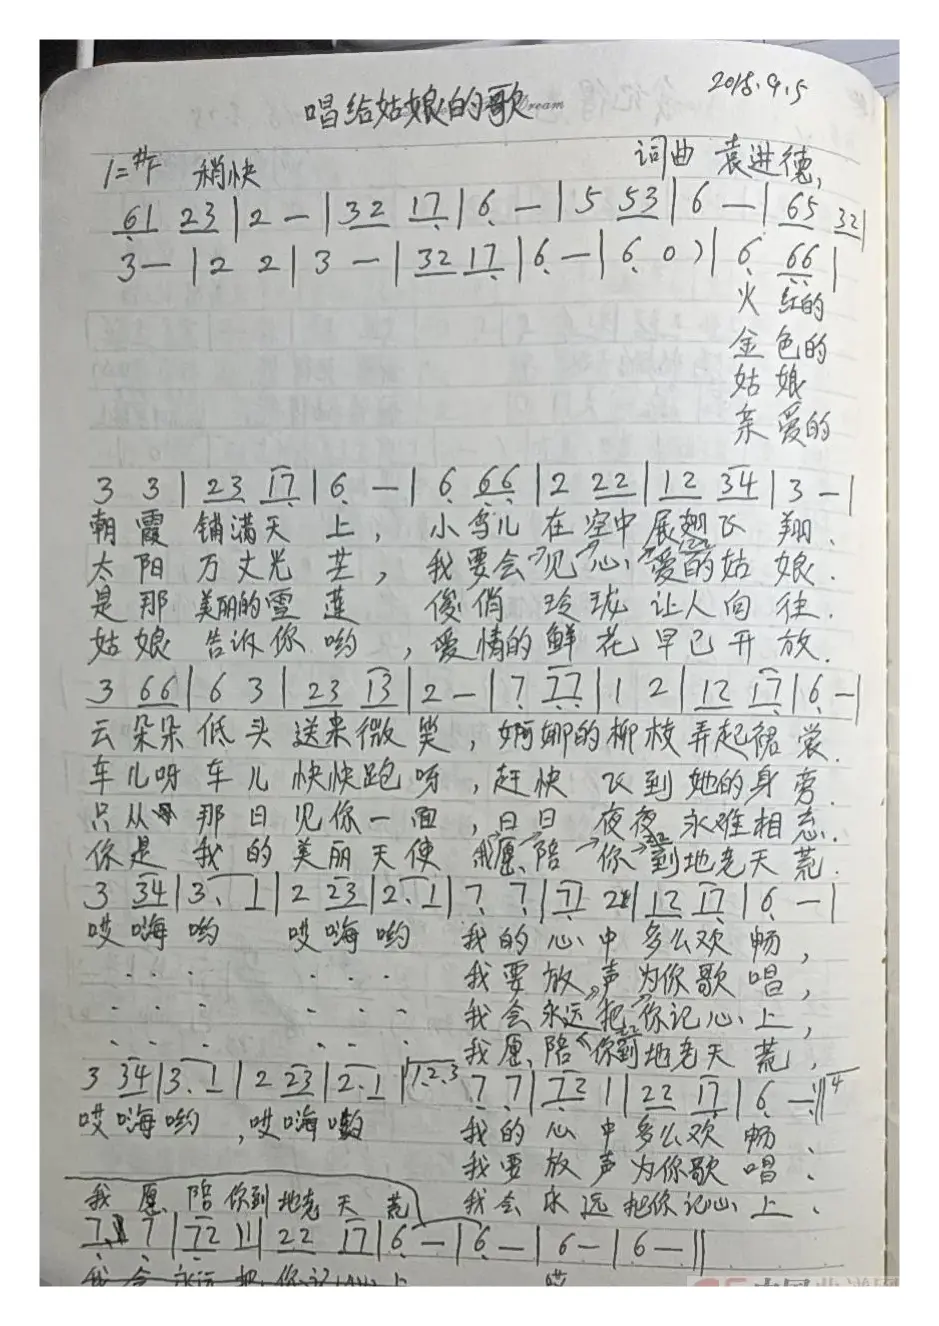 2018.9.5
唱给姑娘的歌
1=#F 稍快 词曲 袁进德
61 23 | 2 — | 32 17 | 6 — | 5 53 | 6 — | 65 32 |
3 — | 2 2 | 3 — | 32 17 | 6 — | 6 0 ) | 6 66 |
火 红的
金色的
姑 娘
亲爱的
3 3 | 23 17 | 6 — | 6 66 | 2 22 | 12 34 | 3 — |
朝霞铺满天上，小鸟儿在空中展翅飞翔.
太阳万丈光芒，我要会见心爱的姑娘.
是那美丽的雪莲 俊俏玲珑让人向往.
姑娘告诉你哟，爱情的鲜花早已开放.
3 66 | 6 3 | 23 13 | 2 — | 7 77 | 1 2 | 12 17 | 6 — |
云朵朵低头送来微笑，婀娜的柳枝弄起裙裳.
车儿呀车儿快快跑呀，赶快飞到她的身旁.
只从那日见你一面，日日夜夜永难相忘.
你是我的美丽天使 我愿陪你到地老天荒.
3 34 | 3. 1 | 2 23 | 2. 1 | 7 7 | 71 2 | 12 17 | 6 — |
哎嗨哟 哎嗨哟 我的心中多么欢畅，
. . . . . . 我要放声为你歌唱，
. . . . . . 我会永远把你记心上，
. . . . . . 我愿陪你到地老天荒，
3 34 | 3. 1 | 2 23 | 2. 1 | 1.2.3 7 7 | 72 1 | 22 17 | 6 — :|| 4
哎嗨哟，哎嗨 我的心中多么欢畅.
我要放声为你歌唱.
我愿陪你到地老天荒 我会永远把你记心上.
7 7 | 72 1 | 22 17 | 6 — | 6 — | 6 — | 6 — ||
我会永远把你记心上 哎